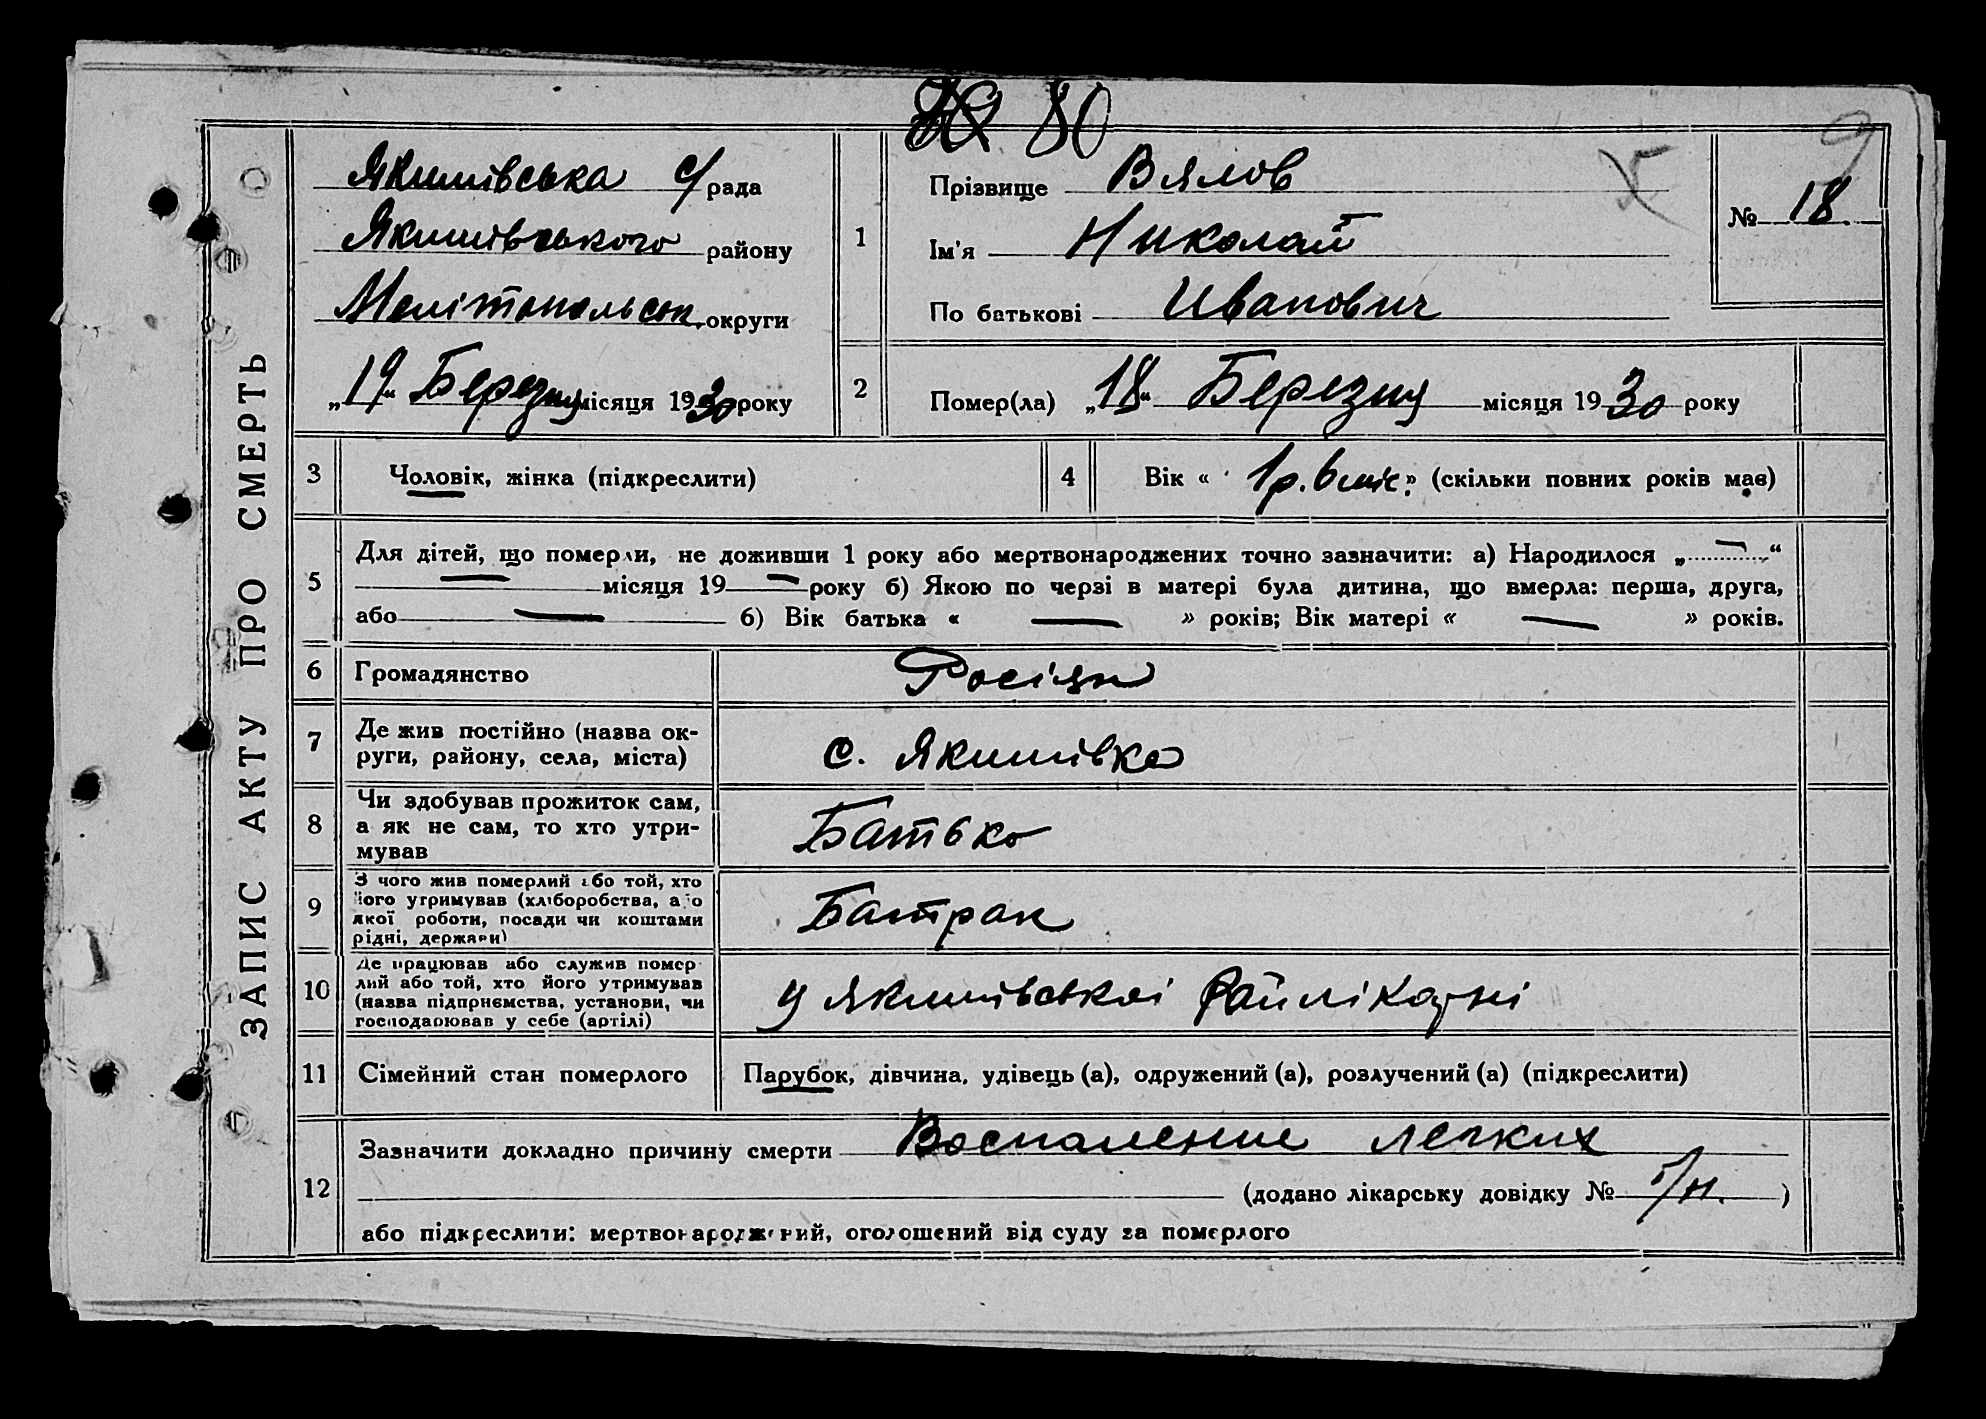 80
ЗАПИС АКТУ ПРО СМЕРТЬ
Якимівська с/рада
Якимівського району
Мелітопольськ. округи
„19“ Березня місяця 1930 року
1
Прізвище Вялов
Ім'я Николай
По батькові Иванович
№ 18.
2
Помер(ла) „18“ Березня місяця 1930 року
3 Чоловік, жінка (підкреслити)
4 Вік « 1 р. 6 міс. » (скільки повних років має)
5
Для дітей, що померли, не доживши 1 року або мертвонароджених точно зазначити: а) Народилося „—“
— місяця 19 — року б) Якою по черзі в матері була дитина, що вмерла: перша, друга,
або — б) Вік батька « — » років; Вік матері « — » років.
6 Громадянство Росіян
7 Де жив постійно (назва ок-
руги, району, села, міста)
с. Якимівка
8 Чи здобував прожиток сам,
а як не сам, то хто утри-
мував
Батько
9 З чого жив померлий або той, хто
його утримував (хліборобства, або
якої роботи, посади чи коштами
рідні, держави)
Батрак
10 Де працював або служив помер-
лий або той, хто його утримував
(назва підприємства, установи, чи
господарював у себе (артілі)
у Якимівській райлікарні
11 Сімейний стан померлого Парубок, дівчина, удівець (а), одружений (а), розлучений (а) (підкреслити)
12
Зазначити докладно причину смерти Воспаление легких
(додано лікарську довідку № б/н. )
або підкреслити: мертвонароджений, оголошений від суду за померлого